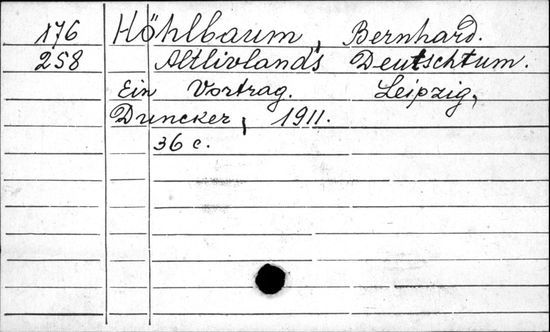 176 Höhlbaum, Bernhard.
258 Altlivlands Deutschtum.
Ein Vortrag. Leipzig,
Duncker, 1911.
36 c.